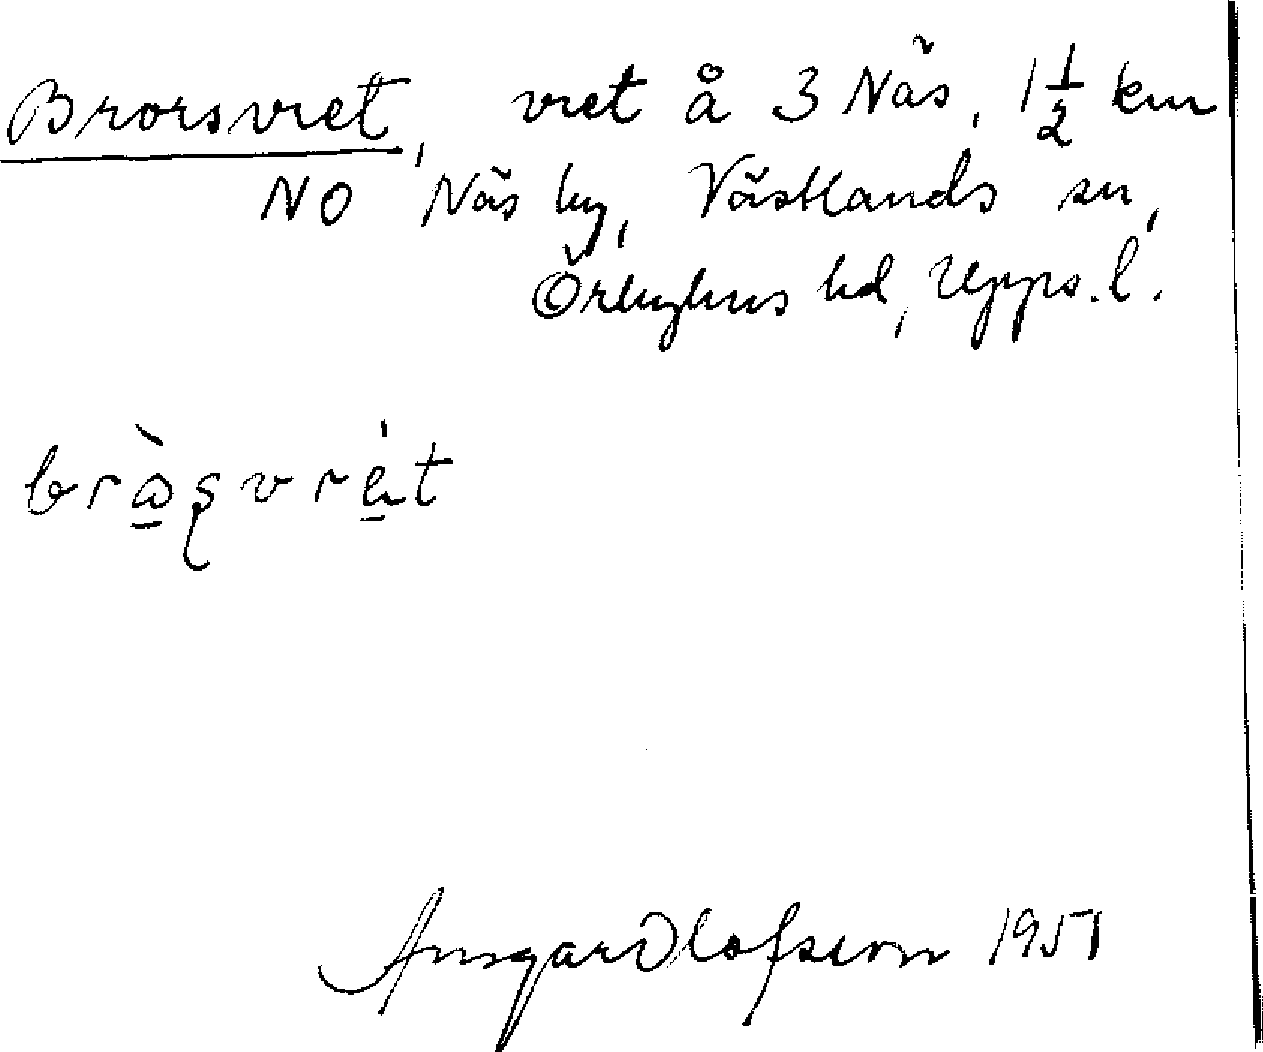 Brorsvret, vret å 3 Näs, 1½ km
NO Näs by, Västlands sn,
Örbyhus hd, Upps. l.
Ansgar Olofsson 1951